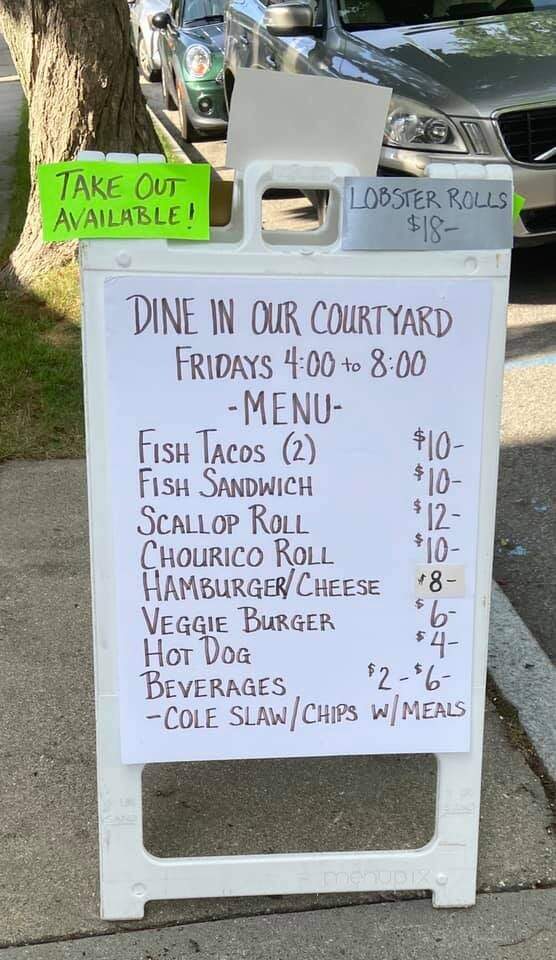 TAKE OUT
AVAILABLE!
LOBSTER ROLLS
$18-
DINE IN OUR COURTYARD
FRIDAYS 4:00 to 8:00
-MENU-
FISH TACOS (2) $10-
FISH SANDWICH $10-
SCALLOP ROLL $12-
CHOURICO ROLL $10-
HAMBURGER/CHEESE $8-
VEGGIE BURGER $6-
HOT DOG $4-
BEVERAGES $2-$6-
-COLE SLAW/CHIPS W/MEALS
menupix